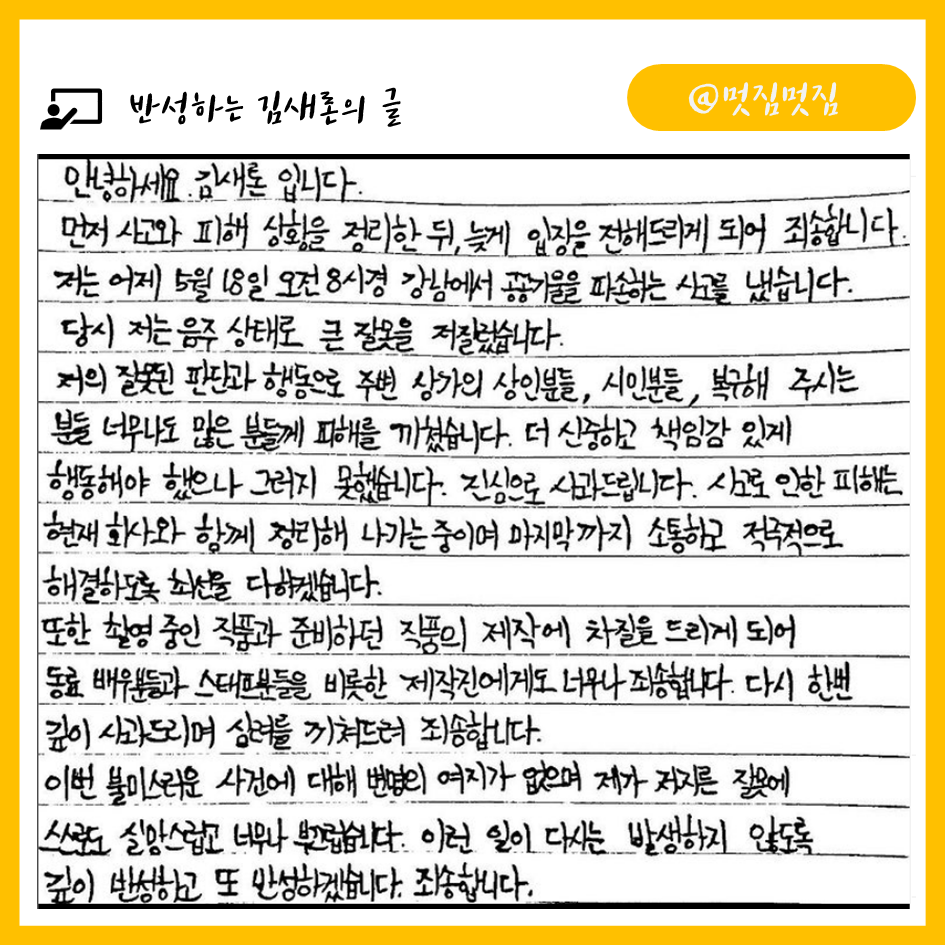 반성하는 김새론의 글
@멋짐멋짐
안녕하세요. 김새론 입니다.
먼저 사고와 피해 상황을 정리한 뒤, 늦게 입장을 전해드리게 되어 죄송합니다.
저는 어제 5월 18일 오전 8시경 강남에서 공공기물을 파손하는 사고를 냈습니다.
당시 저는 음주 상태로 큰 잘못을 저질렀습니다.
저의 잘못된 판단과 행동으로 주변 상가의 상인분들, 시민분들, 복구해 주시는
분들 너무나도 많은 분들께 피해를 끼쳤습니다. 더 신중하고 책임감 있게
행동해야 했으나 그러지 못했습니다. 진심으로 사과드립니다. 사고로 인한 피해는
현재 회사와 함께 정리해 나가는 중이며 마지막까지 소통하고 적극적으로
해결하도록 최선을 다하겠습니다.
또한 촬영 중인 작품과 준비하던 작품의 제작에 차질을 드리게 되어
동료 배우분들과 스태프분들을 비롯한 제작진에게도 너무나 죄송합니다. 다시 한번
깊이 사과드리며 심려를 끼쳐드려 죄송합니다.
이번 불미스러운 사건에 대해 변명의 여지가 없으며 제가 저지른 잘못에
스스로도 실망스럽고 너무나 부끄럽습니다. 이런 일이 다시는 발생하지 않도록
깊이 반성하고 또 반성하겠습니다. 죄송합니다.